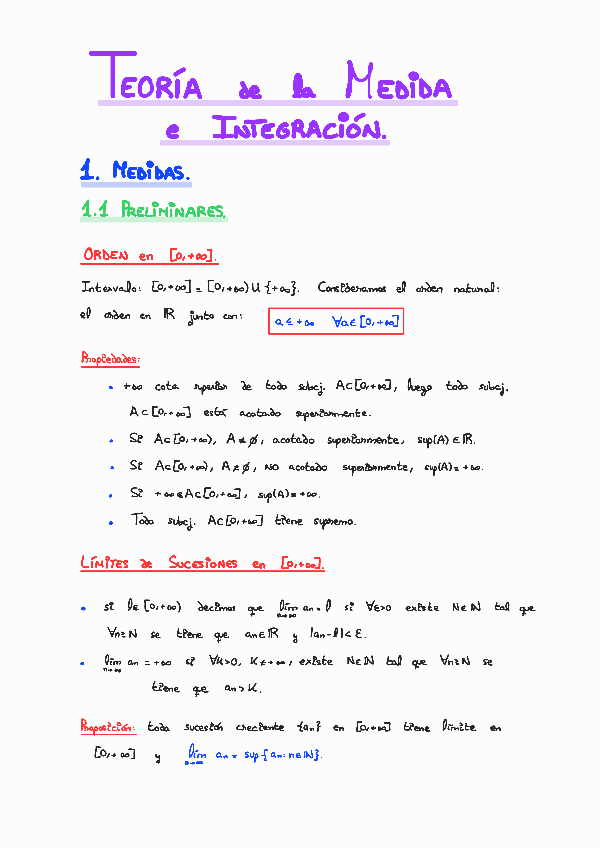 TEORÍA de la MEDIDA
e INTEGRACIÓN.
1. MEDIDAS.
1.1 PRELIMINARES.
ORDEN en [0,+∞].
Intervalo: [0,+∞] = [0,+∞) ∪ {+∞}. Consideramos el orden natural:
el orden en ℝ junto con: a ≤ +∞ ∀a∈[0,+∞]
Propiedades:
• +∞ cota superior de todo subcj. A⊂[0,+∞], luego todo subcj.
A⊂[0,+∞] está acotado superiormente.
• Si A⊂[0,+∞), A≠∅, acotado superiormente, sup(A)∈ℝ.
• Si A⊂[0,+∞), A≠∅, NO acotado superiormente, sup(A)=+∞.
• Si +∞∈A⊂[0,+∞], sup(A)=+∞.
• Todo subcj. A⊂[0,+∞] tiene supremo.
LÍMITES de SUCESIONES en [0,+∞].
• si l∈[0,+∞) decimos que lim n→∞ an = l si ∀ε>0 existe N∈ℕ tal que
∀n≥N se tiene que an∈ℝ y |an-l|<ε.
• lim n→∞ an = +∞ si ∀K>0, K≠+∞, existe N∈ℕ tal que ∀n≥N se
tiene que an>K.
Proposición: toda sucesión creciente {an} en [0,+∞] tiene límite en
[0,+∞] y lim n→∞ an = sup{an: n∈ℕ}.